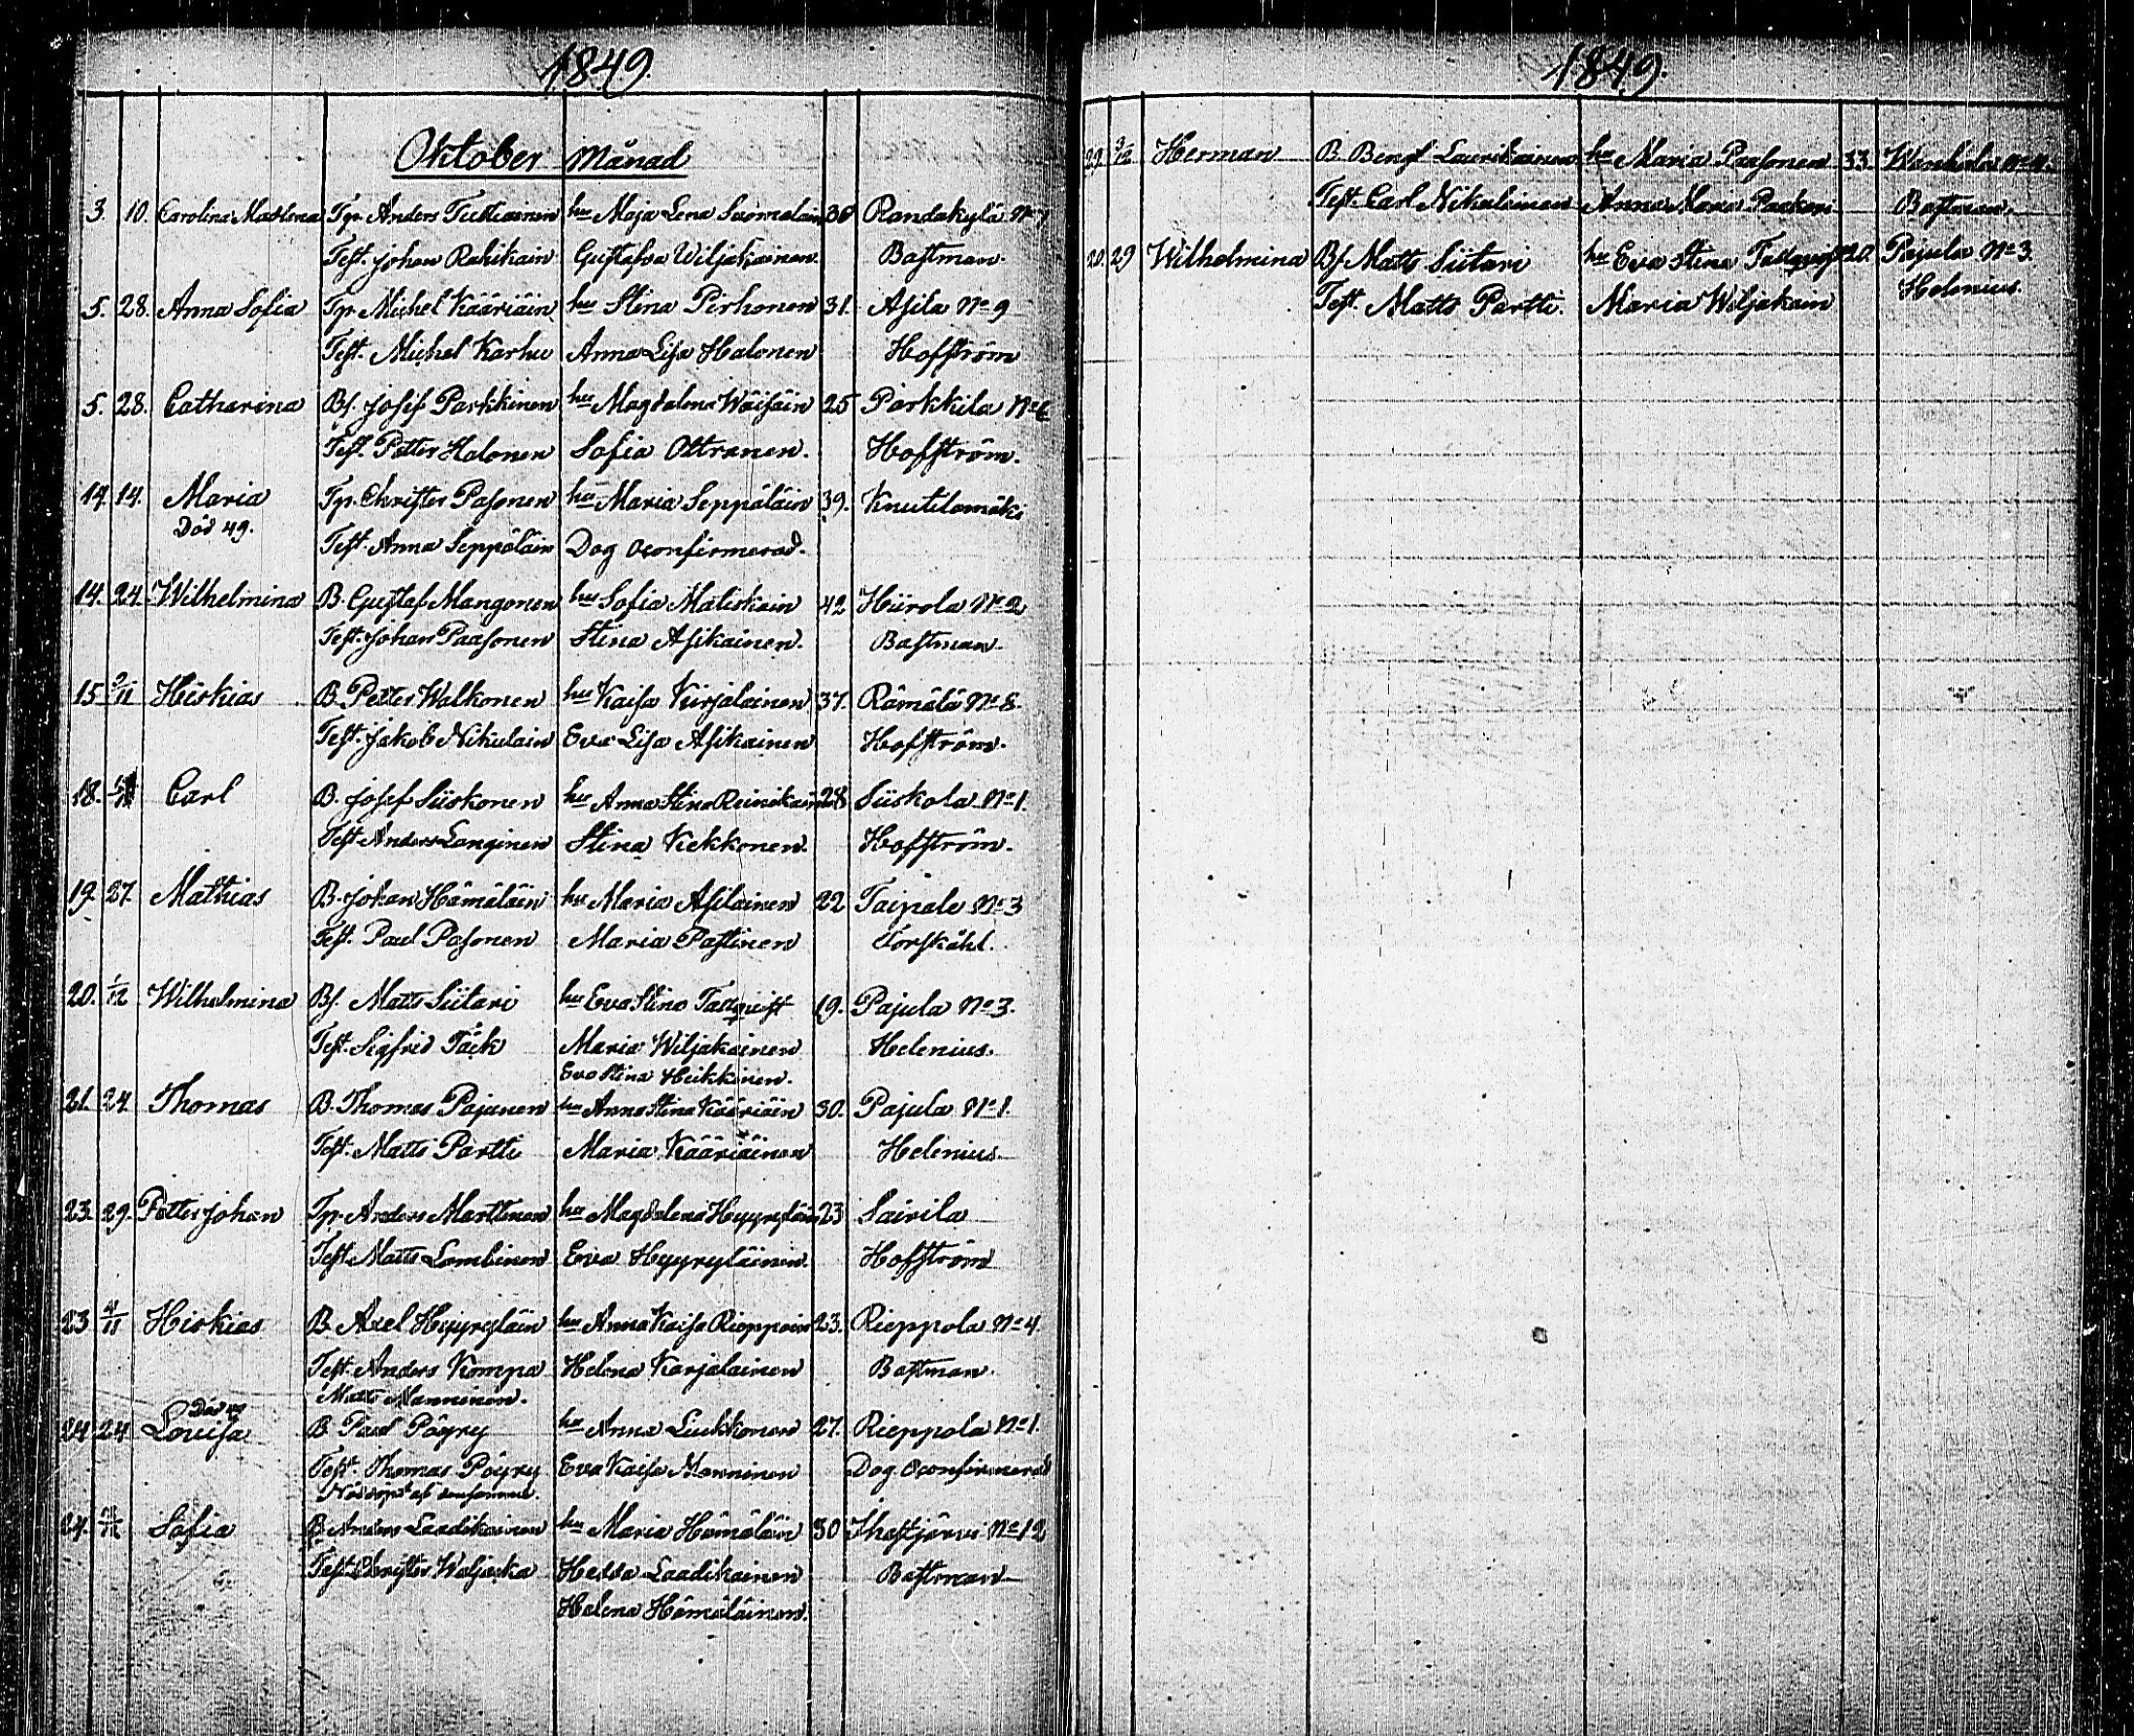 1849.
Oktober Månad
3. 10. Carolina Mathlena Tp. Anders Tuttiainen hu Maja Lena Suomalain 36 Randakylä No 7
Test. Johan Rahikain Gustafva Wiljakainen. Bastman.
5. 28. Anna Sofia Tp. Michel Kääriäin hu Stina Pirhonen 31. Asila No 9
Test. Michel Karhu Anna Lisa Halonen Hoffström
5. 28. Catharina Bs. Josef Parkkinen hu Magdalena Wäisäin 25 Parkkila No 6
Test. Petter Halonen Sofia Ottranen. Hoffström.
14. 14. Maria Tp. Christer Pasonen hu Maria Seppäläin 39. Knutilamäki
Död 49.
Test. Anna Seppäläin Dog oconfirmerad.
14. 24. Wilhelmina B. Gustaf Mangonen hu Sofia Matiskain 42 Hiirola No 2
Test. Johan Paasonen Stina Asikainen. Bastman.
15 9/11 Hiskias B. Petter Walkonen hu Kaisa Kirjalainen 37. Rämälä No 8.
Test. Jakob Nikulain Eva Lisa Asikainen Hoffström.
18. Carl B. Josef Siiskonen hu Anna Stina Reinikain 28 Siiskola No 1.
Test Anders Langinen Stina Kekkonen. Hoffström.
19. 27. Mathias B. Johan Hämäläin hu Maria Asilainen 22 Taipale No 3
Test. Paul Pasonen Maria Pastinen Forskåhl.
20. 1/12 Wilhelmina Bs. Matts Siitari hu Eva Stina Tallqvist 19. Pajula No 3.
Test. Sigfrid Täck Maria Wiljakainen Helenius.
Eva Stina Heikkinen.
21. 24 Thomas B. Thomas Pajunen hu Anna Stina Kääriäin 30. Pajula No 1.
Test. Matts Partti Maria Kääriäinen Helenius.
23. 29. Petter Johan Tp. Anders Marttinen hu Magdalena Hyyryläin 23 Sairila
Test Matts Lambinen Eva Hyyryläinen. Hoffström
23 4/11 Hiskias B. Axel Hyyryläin hu Anna Kaisa Rieppoin 23. Rieppola No 4.
Test. Anders Kompa Helena Karjalainen Bastman.
Matts Manninen.
Död 49
24 24 Lovisa B. Paul Pöyry hu Anna Liukkonen 27. Rieppola No 1.
Test. Thomas Pöyry Eva Kaisa Manninen Dog. Oconfirmerad
Nöddöpt af densamme.
24. Sofia B. Anders Laadikainen hu Maria Hämäläin 30 Ihastjärvi No 12
Test. Christer Waljacka Hedda Laadikainen Bastman
Helena Hämäläinen.
1849.
29 9/12 Herman B. Bengt Laurikainen hu Maria Paasonen 33. Wanhala No 4.
Test. Carl Nikulainen Anna Maria Paakari Bastman.
20. 29 Wilhelmina Bs. Matts Siitari hu Eva Stina Tallqvist 20. Pajula No 3.
Test. Matts Partti. Maria Wiljakain Helenius.